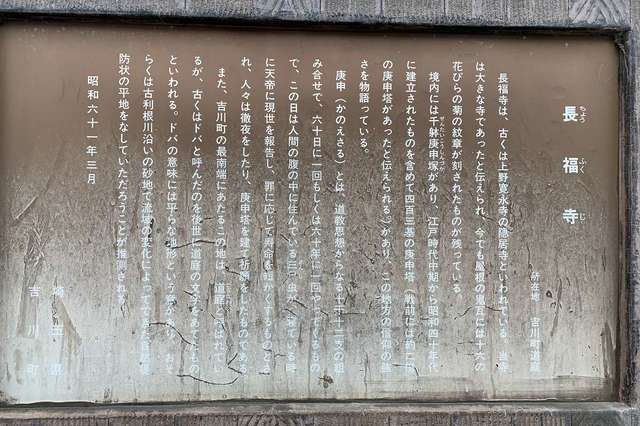 長福寺
ちょう ふく じ
所在地 吉川町道庭
長福寺は、古くは上野寛永寺の隠居寺といわれている。当寺
は大きな寺であったと伝えられ、今でも屋根の鬼瓦には十六の
花びらの菊の紋章が刻まれたものが残っている。
境内には千躰庚申塚があり、江戸時代中期から昭和四十年代
に建立されたものを含めて四百三基の庚申塔(戦前には約二千
の庚申塔があったと伝えられる)があり、この地方の信仰の
さを物語っている。
庚申(かのえさる)とは、道教思想からなる十干十二支の組
み合せで、六十日に一回もしくは六十年に一回やってくるもの
で、この日は人間の腹の中に住んでいる三尸虫が、寝ている時
に天帝に現世を報告し、罪に応じて寿命を縮めるとされ
れ、人々は徹夜をしたり、庚申塔を建て祈願をしたものである
また、吉川町の最南端にあたるこの地は、道庭と呼ばれてい
るが、古くはドバと呼んだのを後世に道庭の文字をあてたもの
といわれる。ドバの意味には平らな地形という意があり、おそ
らくは古利根川沿いの砂地で流路の変化によってできた自然堤
防状の平地をなしていただろうことが推測される。
昭和六十一年三月
埼玉県
吉川町